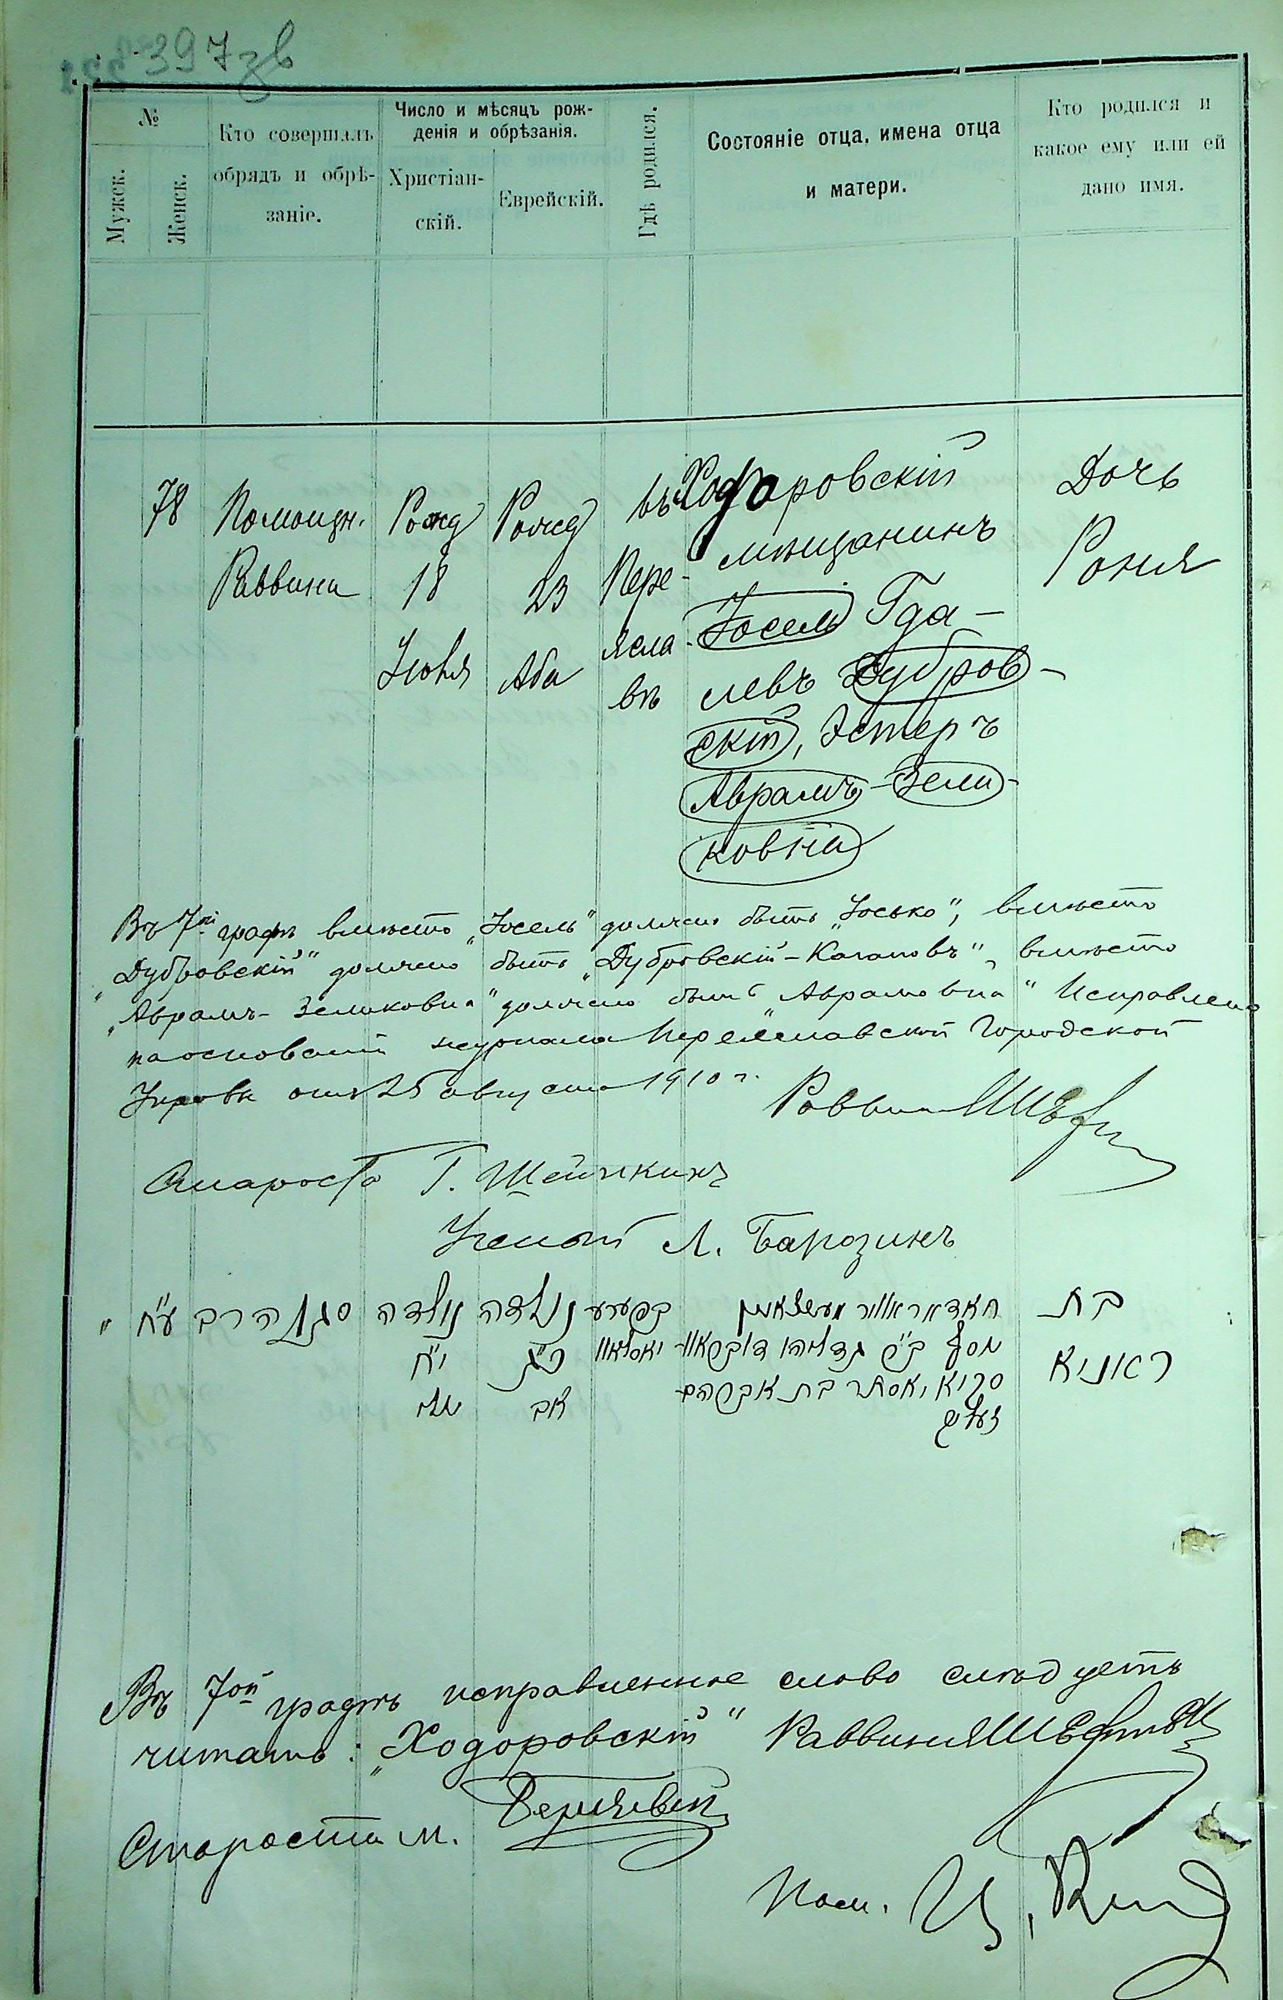 397 зв
№
Мужск.
Женск.
Кто совершалъ
обрядъ и обрѣ-
заніе.
Число и мѣсяцъ рож-
денія и обрѣзанія.
Христіан-
скій.
Еврейскій.
Гдѣ родился.
Состояніе отца, имена отца
и матери.
Кто родился и
какое ему или ей
дано имя.
78
Помощн.
Раввина
Рожд
18
Іюля
Рожд
23
Аба
въ
Пере-
ясла-
вѣ
Ходоровскій
мѣщанинъ
Іосель Гда-
левъ Дубров-
скій, Эстеръ
Аврамъ-Зели-
ковна
Дочь
Роня
Въ 7ой графѣ вмѣсто „Іосель" должно быть „Іосько", вмѣсто
„Дубровскій" должно быть „Дубровскій-Кагановъ", вмѣсто
„Аврамъ-Зеликовна" должно быть „Аврамовна" Исправлено
на основаніи журнала Переяславской Городской
Управы отъ 25 августа 1910 г. Раввинъ
Староста Г. Шейнкинъ
Ученый Л. Барозинъ
" ע״ח
סגן הרב
נולדה
י״ח
נולדה
כ״ג
אב
בת
ראניא
Въ 7ой графѣ исправленное слово слѣдуетъ
читать: „Ходоровскій" Раввинъ
Староста М.
Пом. Ц.